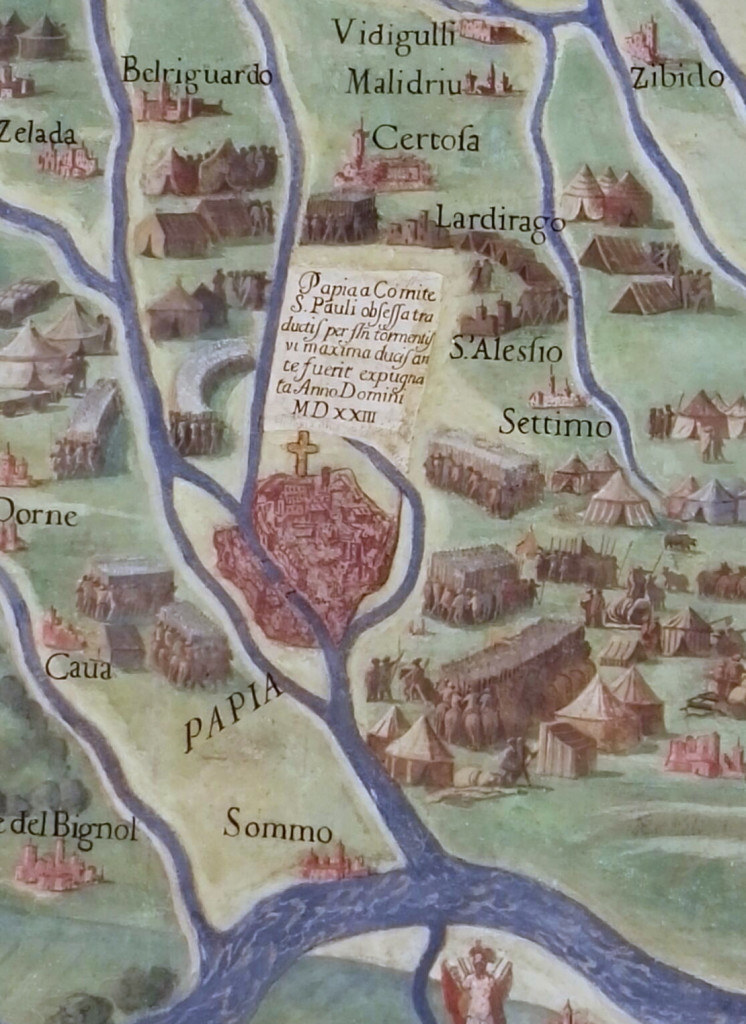 Vidigulli
Belriguardo
Malidriu
Zibido
Zelada
Certosa
Lardirago
Papia a Comite
S. Pauli obsessa tra
ductis per
tormentis
vi maxima ducis an
te fuerit expugna
ta Anno Domini
MDXXIII
S. Alessio
Settimo
Dorne
Caua
PAPIA
e del Bignol
Sommo